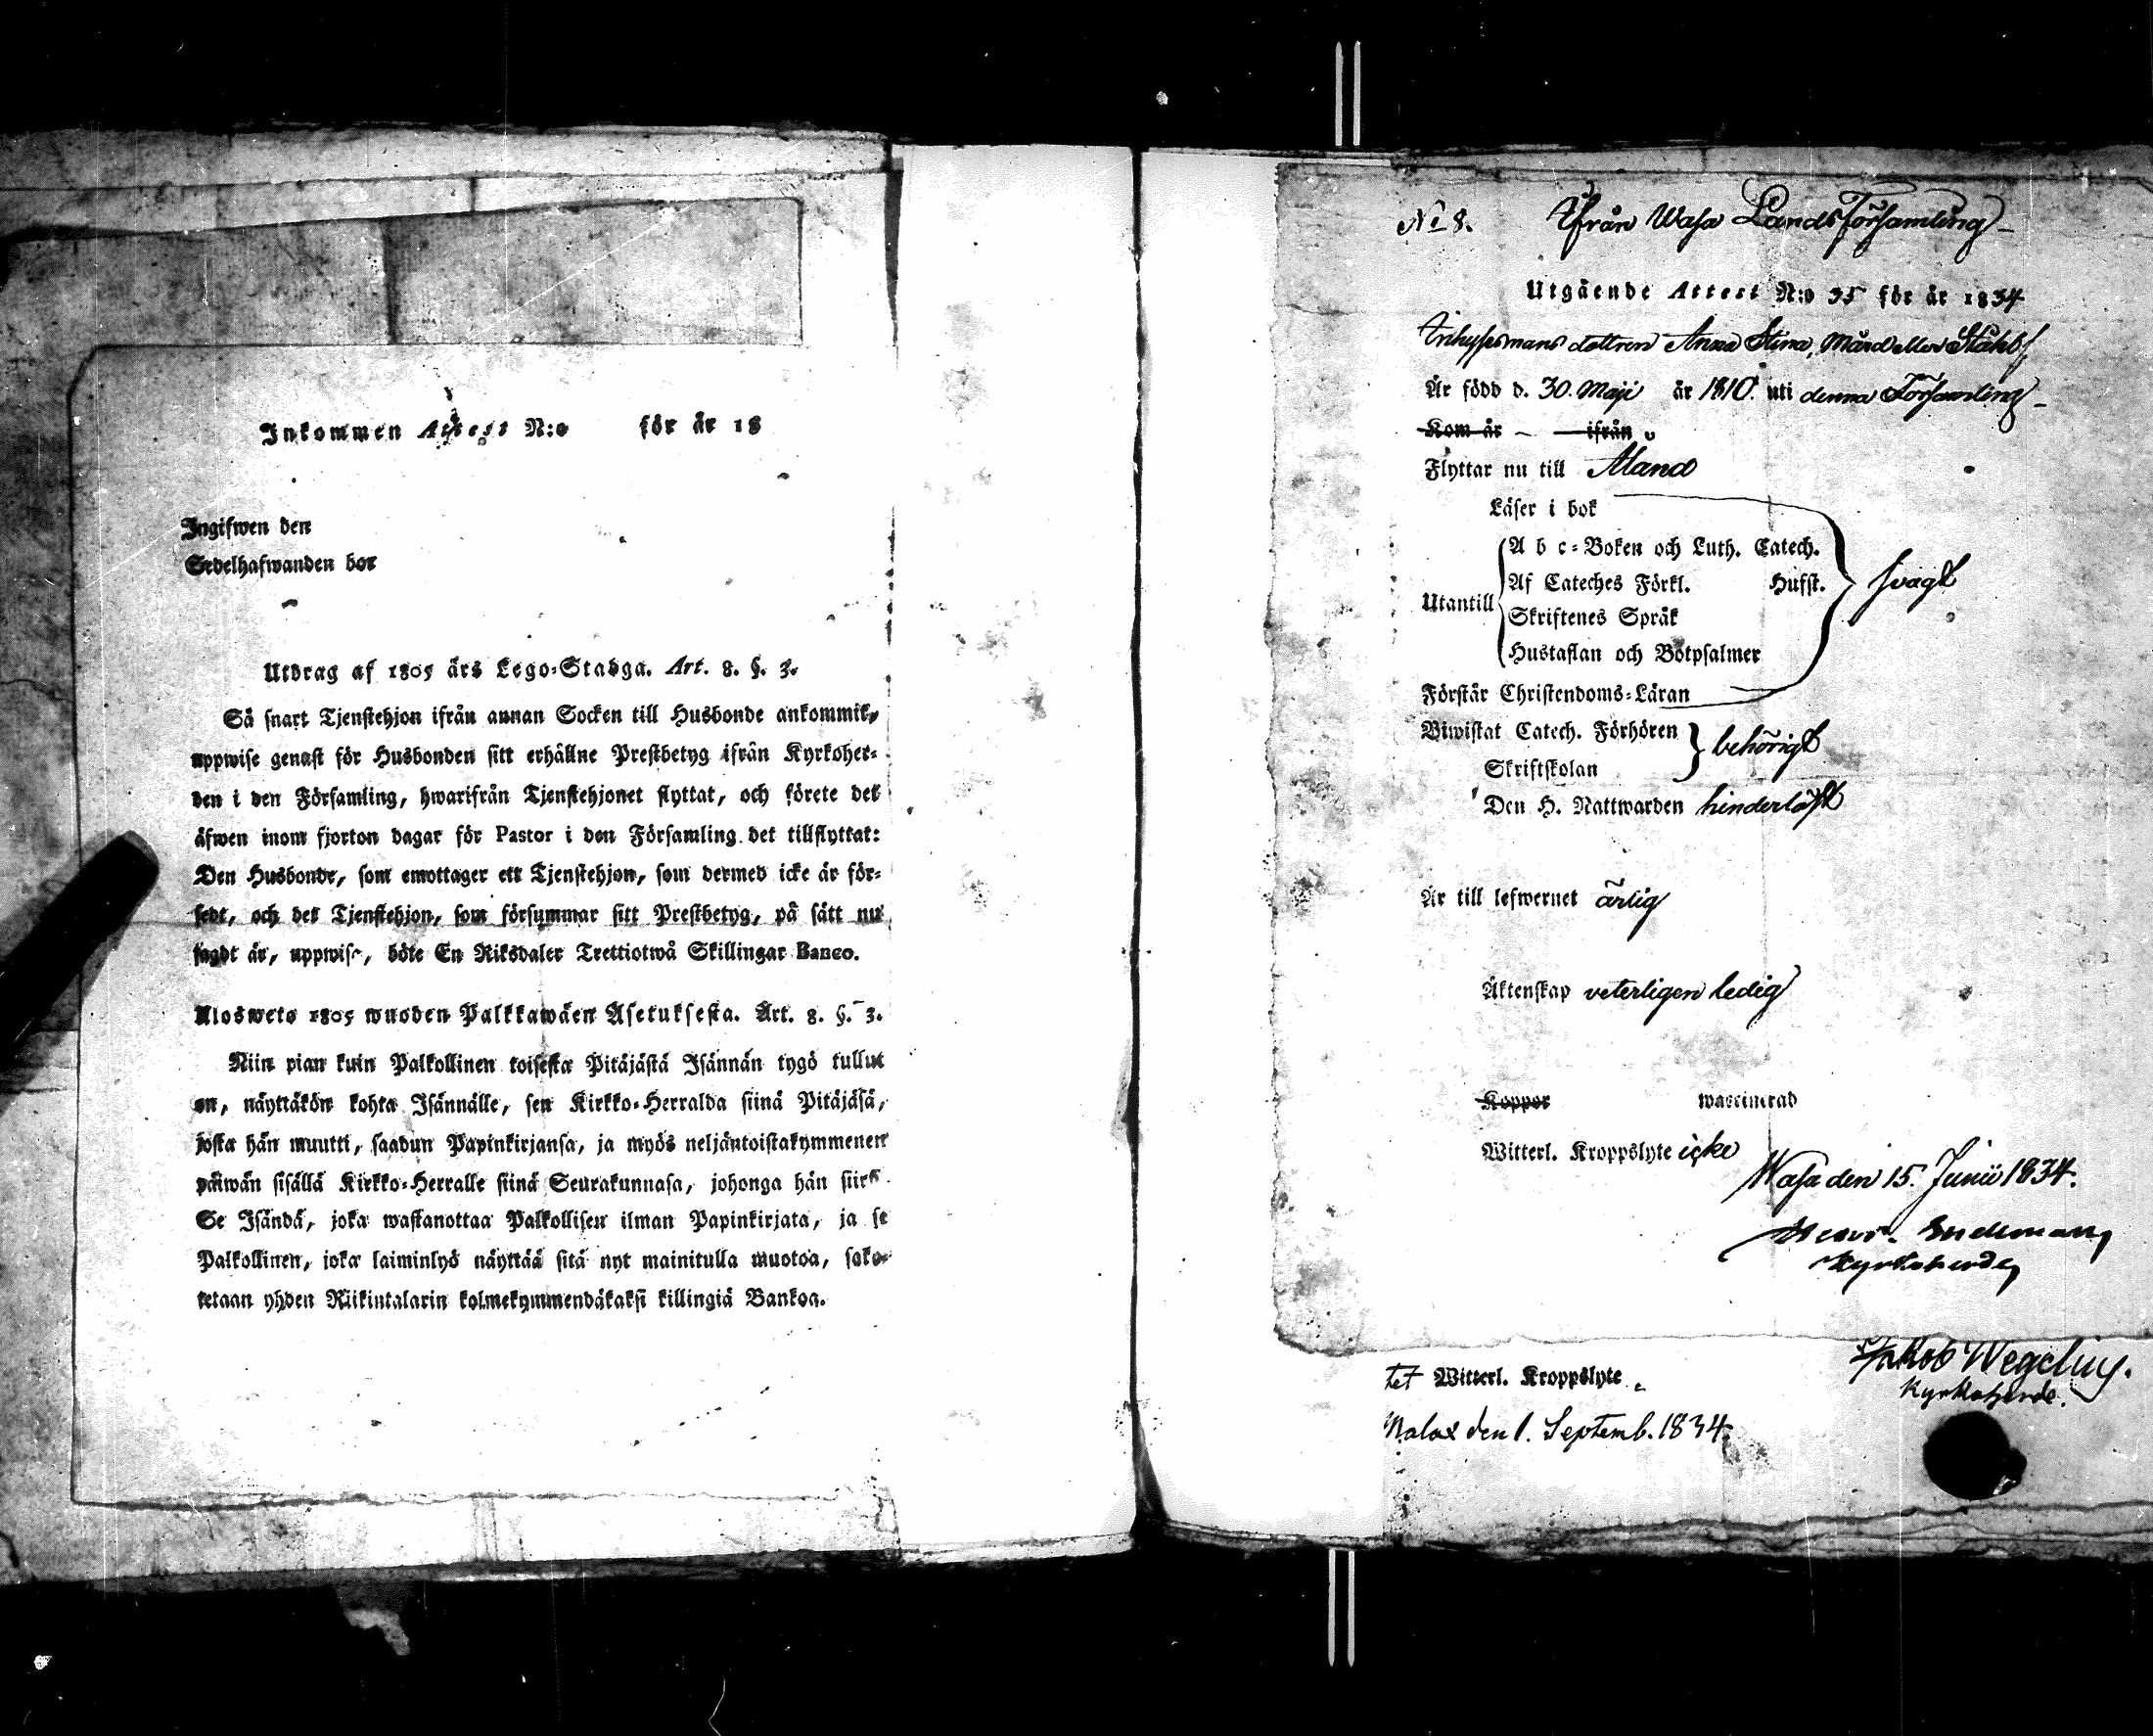 Inkommen Attest N:o för år 18
Ingifwen den
Sedelhafwanden bor
Utdrag af 1805 års Lego-Stadga. Art. 8. §. 3.
Så snart Tjenstehjon ifrån annan Socken till Husbonde ankommit,
uppwise genast för Husbonden sitt erhållne Prestbetyg ifrån Kyrkoher-
den i den Församling, hwarifrån Tjenstehjonet flyttat, och förete det
äfwen inom fjorton dagar för Pastor i den Församling det tillflyttat:
Den Husbonde, som emottager ett Tjenstehjon, som dermed icke är för-
sedt, och det Tjenstehjon, som försummar sitt Prestbetyg, på sått nu
sagdt är, uppwise, böte En Riksdaler Trettiotwå Skillingar Banco.
Ulosweto 1805 wuoden Palkkawäen Asetuksesta. Art. 8. §. 3.
Niin pian kuin Palkollinen toisesta Pitäjästä Isännän tygö tullut
on, näyttäkön kohta Isännälle, sen Kirkko-Herralda siinä Pitäjäsä,
josta hän muutti, saadun Papinkirjansa, ja myös neljäntoistakymmenen
päiwän sisällä Kirkko-Herralle siinä Seurakunnasa, johonga hän siirt
Se Isändä, joka wastanottaa Palkollisen ilman Papinkirjata, ja se
Palkollinen, joka laiminlyö näyttää sitä nyt mainitulla muotoa, sako-
tetaan yhden Riikintalarin kolmekymmendäkaksi killingiä Bankoa.
No 8. Ifrån Wasa Landsförsamling
Utgående Attest N:o 35 för år 1834
Inhysesmans dottren Anna Stina, Mård eller Ståhl
Är född d. 30. Maji år 1810. uti denna Församling
Kom år - ifrån
Flyttar nu till Åland
Läser i bok
A b c-Boken och Luth. Catech.
Af Cateches Förkl. Husst.
Utantill
Skriftenes Språk
Hustaflan och Botpsalmer
svagt
Förstår Christendoms-Läran
Biwistat Catech. Förhören
Skriftskolan
behörigt
Den H. Nattwarden hinderlöst
Är till lefwernet ärlig
Äktenskap veterligen ledig
Koppor waccinerad
Witterl. Kroppslyte icke
Wasa den 15. Junii 1834.
Kyrkoherde
tet Witterl. Kroppslyte
Jakob Wegelius.
Kyrkoherde.
Malax den 1. Septemb. 1834.